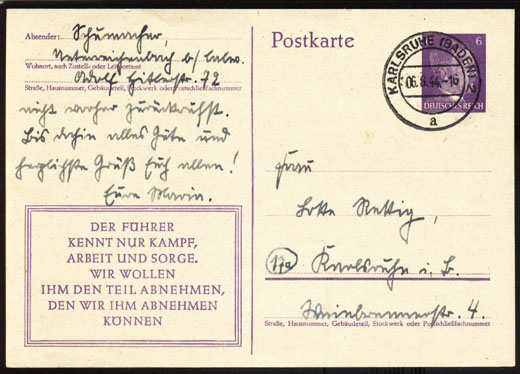 Absender: Schumacher,
Unterreichenbach b/ Calw.
Wohnort, auch Zustell- oder Leitpostamt
Adolf Hitlerstr. 72
Straße, Hausnummer, Gebäudeteil, Stockwerk oder Postschließfachnummer
nicht vorher zurückrufst.
Bis dahin alles Gute und
herzlichste Grüß Euch allen!
Eure Maria.
DER FÜHRER
KENNT NUR KAMPF,
ARBEIT UND SORGE.
WIR WOLLEN
IHM DEN TEIL ABNEHMEN,
DEN WIR IHM ABNEHMEN
KÖNNEN
Postkarte
KARLSRUHE (BADEN) 2
06.8.44.-16
a
6
DEUTSCHES REICH
Frau
Lotte Rettig,
(17a) Karlsruhe i. B.
Weinbrennerstr. 4.
Straße, Hausnummer, Gebäudeteil, Stockwerk oder Postschließfachnummer